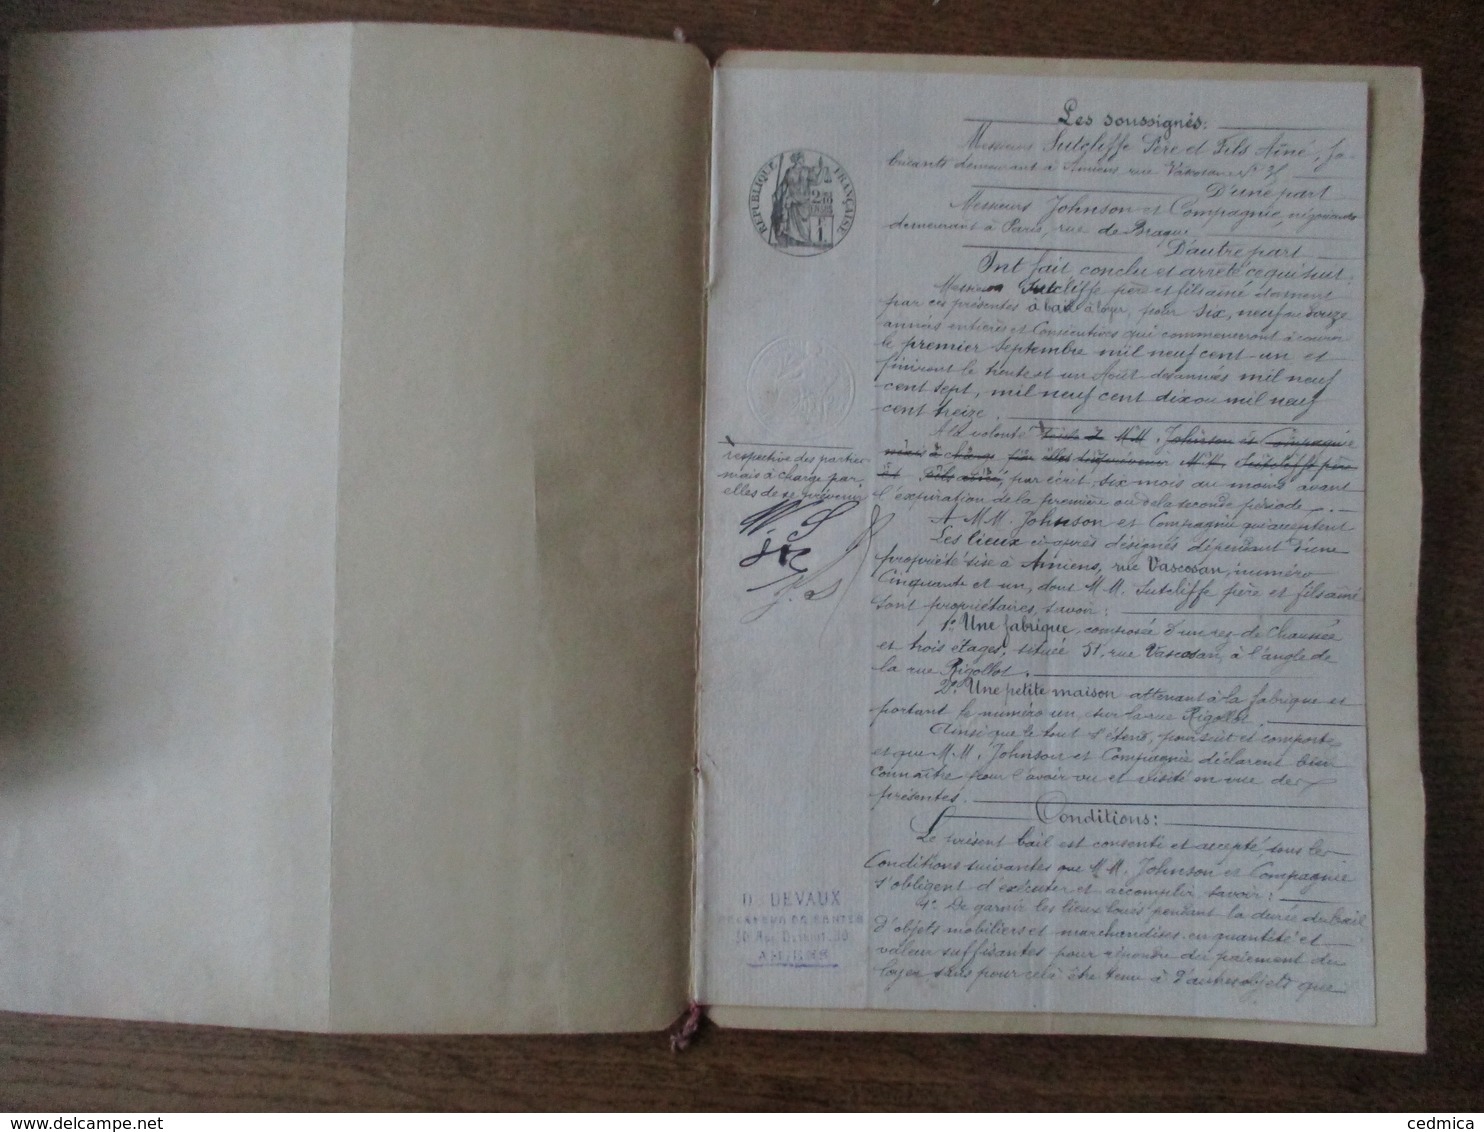 Les soussignés:
Messieurs Sutcliffe Père et Fils Aîné, fa-
bricants demeurant à Amiens rue Vascosan N°
D'une part
Messieurs Johnson et Compagnie, négociants
demeurant à Paris, rue de Braque
D'autre part
Ont fait conclu et arrêté ce qui suit:
Messieurs Sutcliffe père et fils aîné donnent
par ces présentes à bail à loyer, pour six, neuf ou douze
années entières et consécutives qui commenceront à courir
le premier septembre mil neuf cent un et
finiront le trente et un Août des années mil neuf
cent sept, mil neuf cent dix ou mil neuf
cent treize.
A la volonté MM. Johnson et Compagnie
mais à charge par elles de prévenir MM. Sutcliffe père
et Fils aîné, par écrit, six mois au moins avant
l'expiration de la première ou de la seconde période.
A MM. Johnson et Compagnie qui acceptent
Les lieux ci-après désignés dépendant d'une
propriété sise à Amiens, rue Vascosan, numéro
Cinquante et un, dont MM. Sutcliffe père et fils aîné
sont propriétaires, savoir:
1° Une fabrique, composée d'un rez-de-chaussée
et trois étages, située 51, rue Vascosan, à l'angle de
la rue Rigollot.
2° Une petite maison attenant à la fabrique et
portant le numéro un, sur la rue Rigollot.
Ainsi que le tout s'étend, poursuit et comporte
et que MM. Johnson et Compagnie déclarent bien
connaître pour l'avoir vu et visité en vue des
présentes.
Conditions:
Le présent bail est consenti et accepté sous les
Conditions suivantes que MM. Johnson et Compagnie
s'obligent d'exécuter et accomplir savoir:
1° De garnir les lieux loués pendant la durée du bail
d'objets mobiliers et marchandises en quantité et
valeur suffisantes pour répondre du paiement du
loyer sans pour cela être tenu à d'autres objets que
RÉPUBLIQUE FRANÇAISE
respective des parties
mais à charge par
elles de se prévenir
W. S
J. S
D. DEVAUX
AMIENS
cedmica